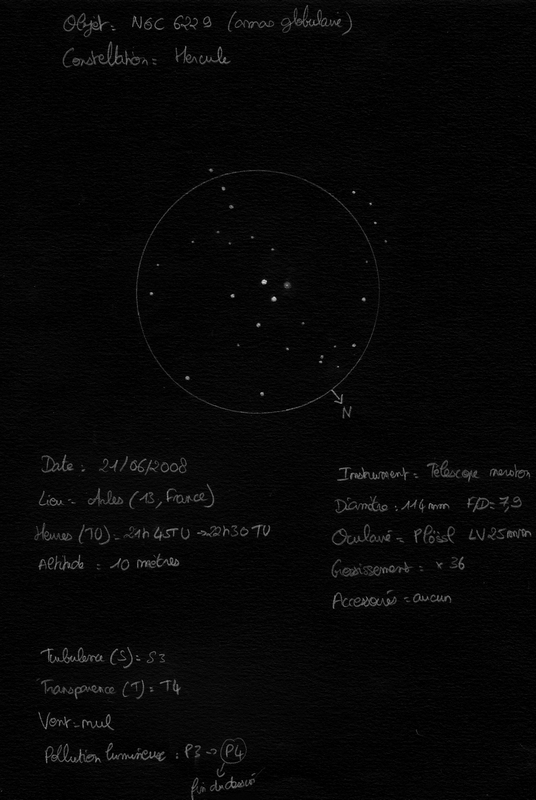 Objet = NGC 6229 (amas globulaire)
Constellation = Hercule
N
Date : 21/06/2008
Lieu = Arles (13, France)
Heures (TU) = 21h45TU → 22h30 TU
Altitude : 10 mètres
Instrument = Télescope newton
Diamètre : 114 mm F/D = 7,9
Oculaire = Plössl LV 25mm
Grossissement = x 36
Accessoires = aucun
Turbulence (S) = S3
Transparence (T) = T4
Vent = nul
Pollution lumineuse : P3 → P4
fin du dessin